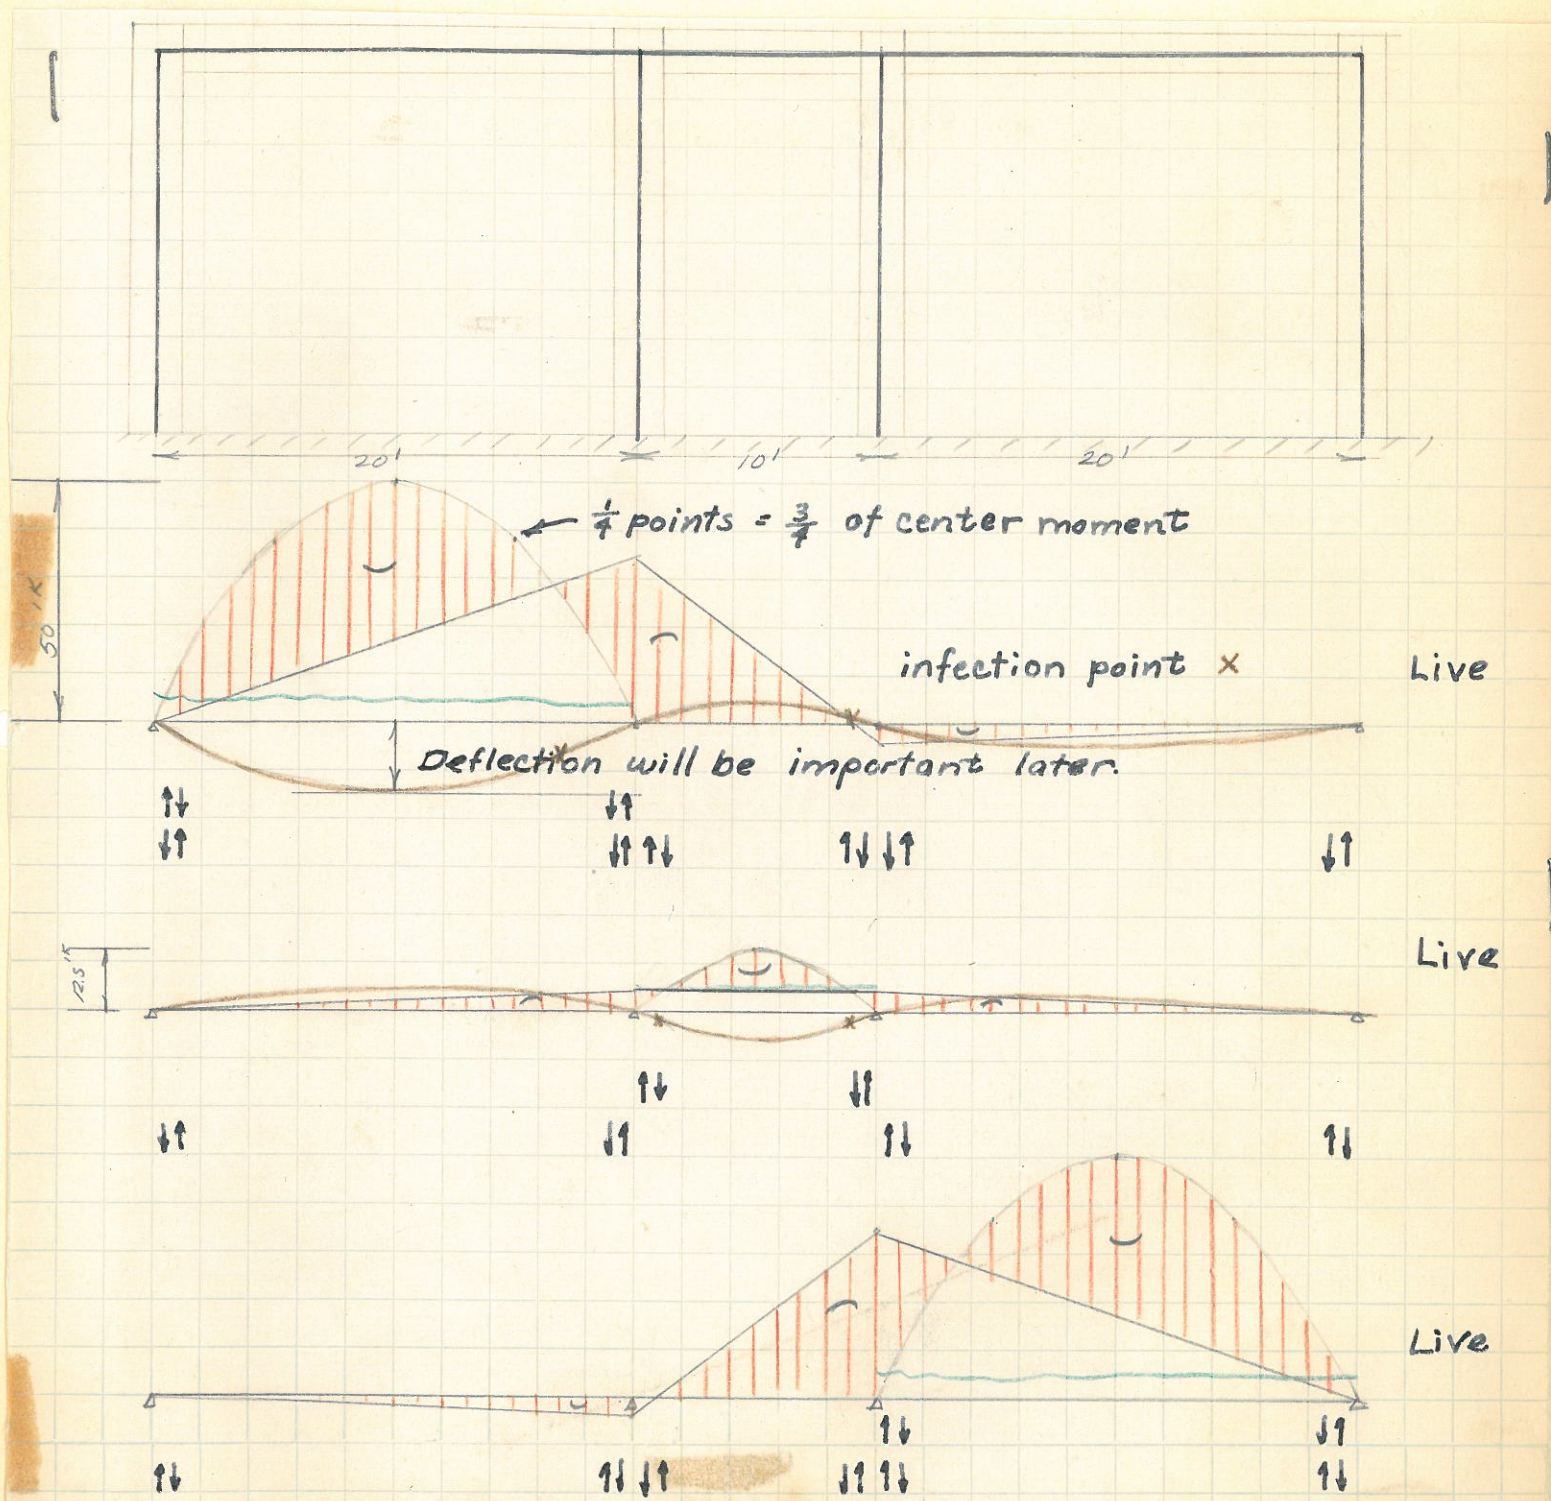 20' 10' 20'
1/4 points = 3/4 of center moment
50 'K
infection point x Live
Deflection will be important later.
12.5 'K
Live
Live